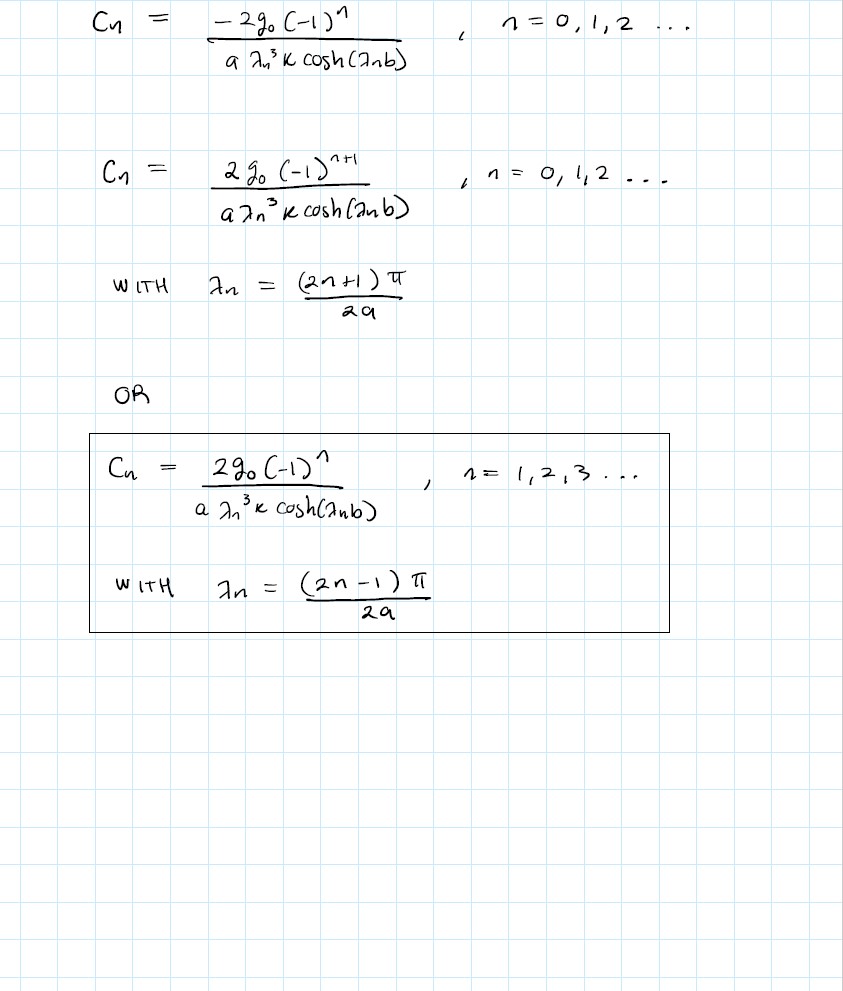 Cn = -2g₀(-1)ⁿ / a λn³ κ cosh(λnb) , n = 0, 1, 2 ...
Cn = 2g₀(-1)ⁿ⁺¹ / a λn³ κ cosh(λnb) , n = 0, 1, 2 ...
WITH λn = (2n+1)π / 2a
OR
Cn = 2g₀(-1)ⁿ / a λn³ κ cosh(λnb) , n = 1, 2, 3 ...
WITH λn = (2n-1)π / 2a